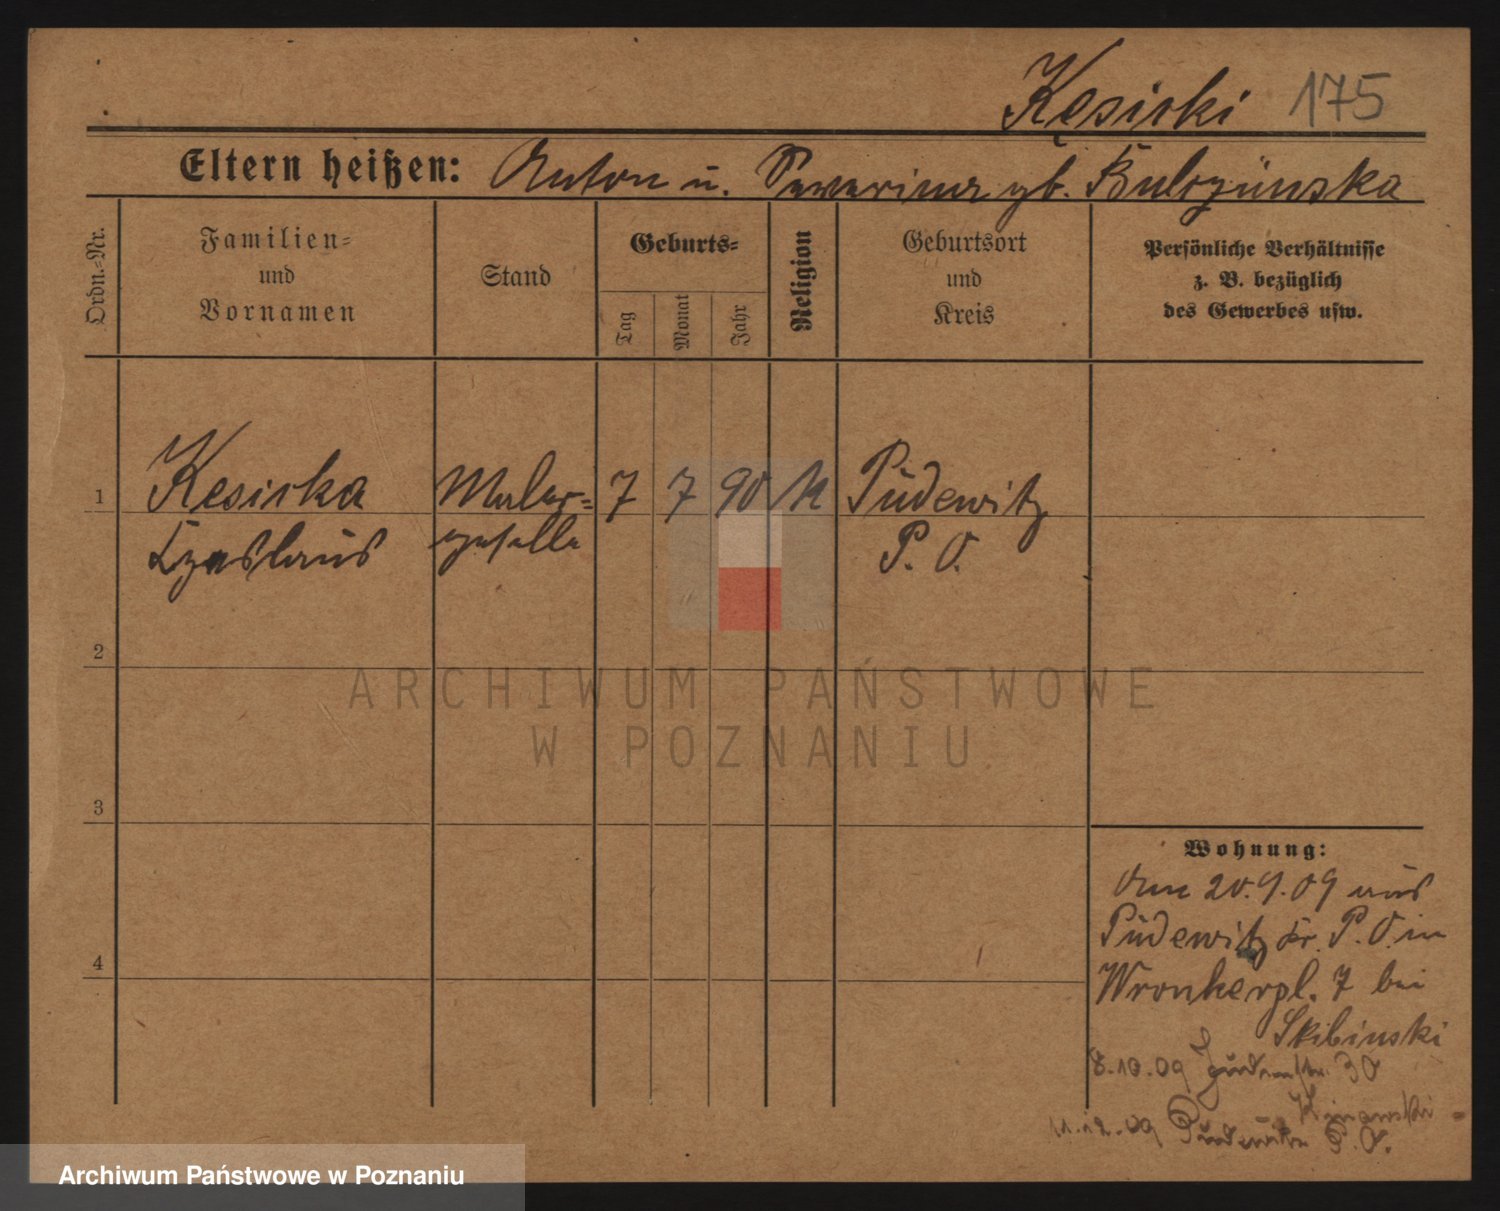 Kęsicki 175
Eltern heißen: Anton u. Severina gb. Bulczynska
Ordn.=Nr.
Familien=
und
Vornamen
Stand
Geburts=
Tag
Monat
Jahr
Religion
Geburtsort
und
Kreis
Persönliche Verhältnisse
z. B. bezüglich
des Gewerbes usw.
1 Kesicka Maler= 7 7 90 k Pudewitz
Czeslaus geselle P. O.
2
3
4
Wohnung:
Am 20.9.09 aus
Pudewitz Kr. P. O. in
Wronkerpl. 7 bei
Skibinski
8.10.09 Judenstr. 30
11.12.09 Pudewitz P. O.
ARCHIWUM PAŃSTWOWE
W POZNANIU
Archiwum Państwowe w Poznaniu